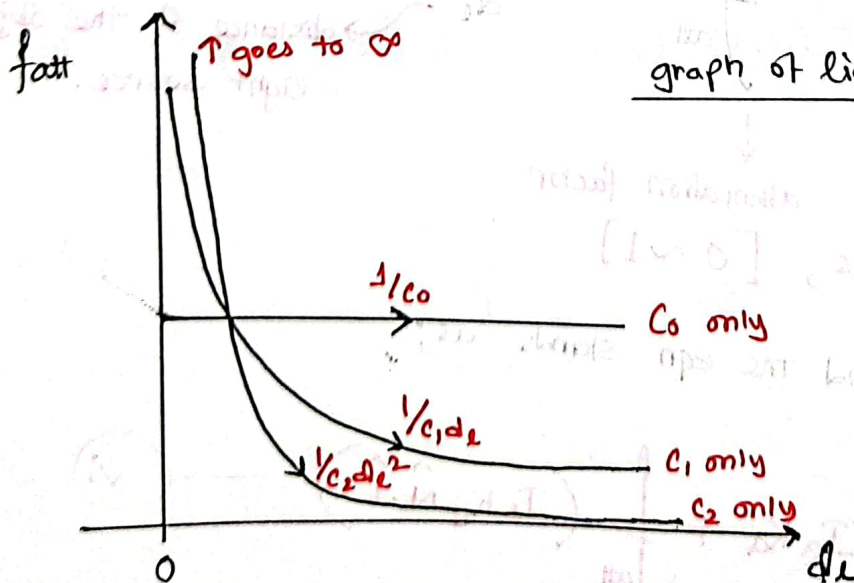 f_att
↑ goes to ∞
graph of
1/C₀
C₀ only
1/C₁d_l
C₁ only
1/C₂d_l²
C₂ only
0
d_l